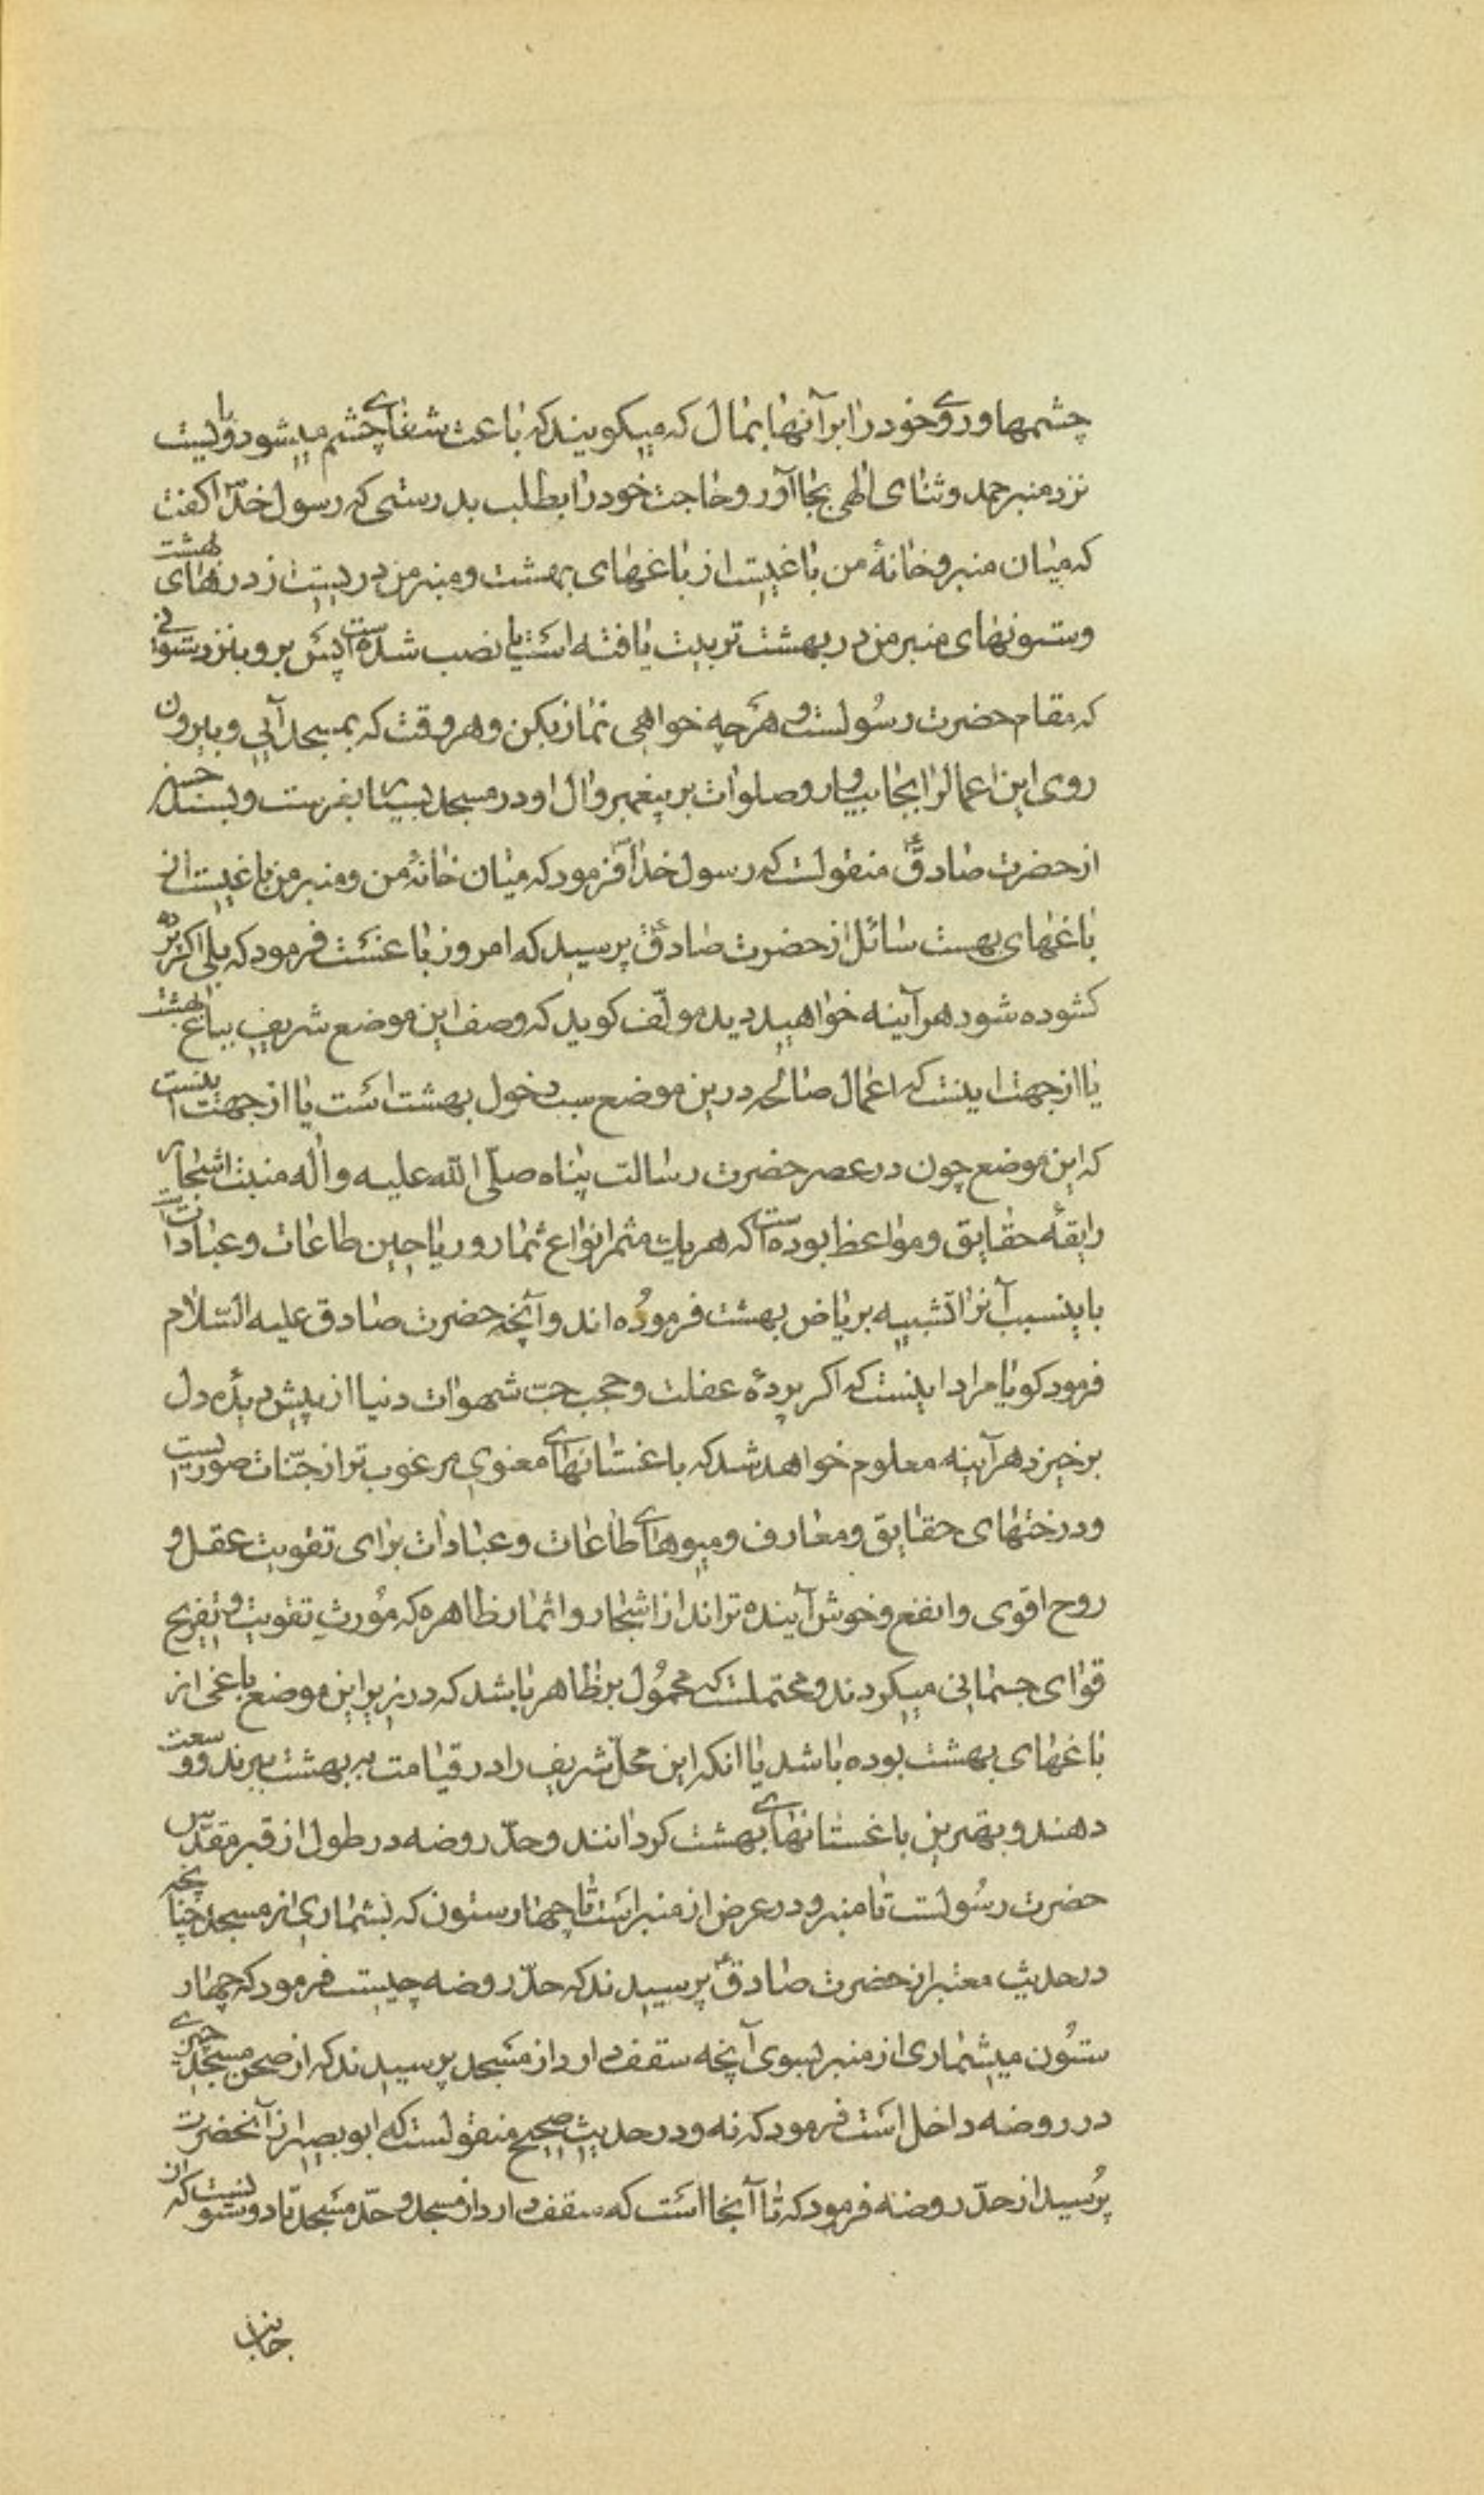 چشمها و روی خود را بر آنها بمال که میکویند که باعث شفای چشم میشود و بایست
نزد منبر حمد و ثنای الهی بجا آور و حاجت خود را بطلب بدرستی که رسول خدا ص کفت
که میان منبر و خانهٔ من باغیست از باغهای بهشت و منبر من دریست از درهای بهشت
و ستونهای منبر من در بهشت تربیت یافته است یا نصب شده است پس برو بنزد ستونی
که مقام حضرت رسُولست و هرچه خواهی نماز بکن و هر وقت که بمسجد آیی و بیرون
روی این اعمالرا بجا بیاور و صلوات بر پیغمبر و ال او در مسجد بسیار بفرست و بسند حسن
از حضرت صادق ع منقولست که رسول خدا ص فرمود که میان خانهٔ من و منبر من باغیست از
باغهای بهست سائل از حضرت صادق ع پرسید که امروز باغست فرمود که بلی اکر پرده
کشوده شود هر آینه خواهید دید مولّف کوید که وصف این موضع شریف بباغ بهشت
یا از جهت اینست که اعمال صالحه درین موضع سبب دخول بهشت است یا از جهت اینست
که این موضع چون در عصر حضرت رسالت پناه صلّی اللّه علیه و اله منبت اشجار
رایقهٔ حقایق و مواعظ بوده است که هر یک مثمر انواع ثمار و ریاحین طاعات و عبادات است
باینسبب آنرا تشبیه بریاض بهشت فرمُوده اند و آنچه حضرت صادق علیه السّلام
فرمود کویا مراد اینست که اکر پردهٔ عفلت و حجب حبّ شهوات دنیا از پیش دیدهٔ دل
برخیزد هر آینه معلوم خواهد شد که باغستانهای معنوی مرغوب تر از جنّات صوریست
و درختهای حقایق و معارف و میوهای طاعات و عبادات برای تقویت عقل و
روح اقوی و انفع و خوش آینده تر اند از اشجار و اثمار ظاهره که مُورث تقویت و تفریح
قوای جسمانی میکردند و محتملست که محمُول بر ظاهر باشد که در زیر این موضع باغی از
باغهای بهشت بوده باشد یا انکه این محلّ شریف را در قیامت به بهشت برند و وسعت
دهند و بهترین باغستانهای بهشت کردانند و حدّ روضه در طول از قبر مقدّس
حضرت رسُولست تا منبر و در عرض از منبر است تا چهار ستون که بشماری از مسجد چنانچه
در حدیث معتبر از حضرت صادق ع پرسیدند که حدّ روضه چیست فرمود که چهار
ستُون میشماری از منبر بسوی آنچه سقف دارد از مسجد پرسیدند که از صحن مسجد چیزی
در روضه داخل است فرمود که نه و در حدیث صحیح منقولست که ابو بصیر از آنحضرت
پُرسید از حدّ روضه فرمود که تا آنجا است که سقف دارد از مسجد و حدّ مسجد تا دو ستونست که از
جانب